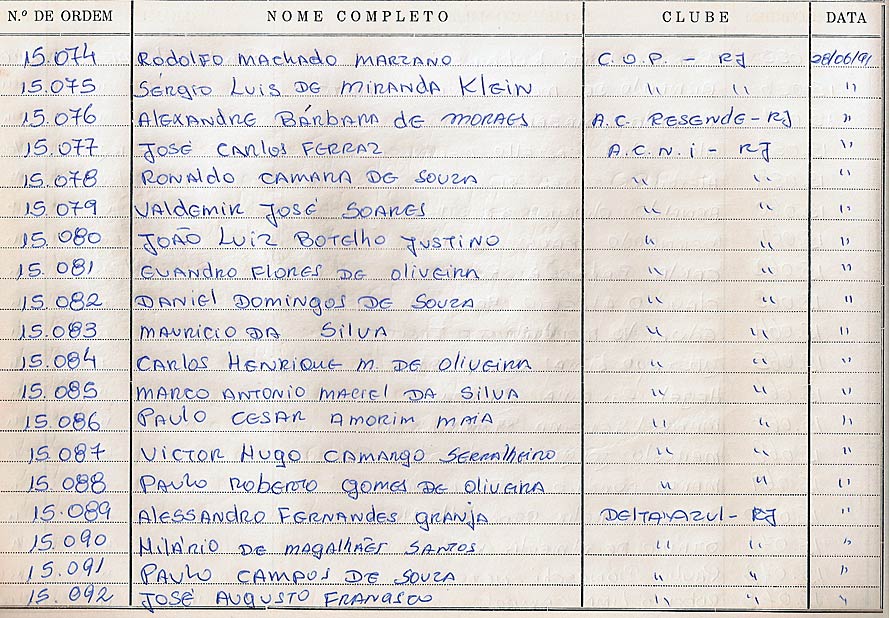 N.º DE ORDEM NOME COMPLETO CLUBE DATA
15.074 RODOLFO MACHADO MARZANO C.O.P. - RJ 28/06/91
15.075 SÉRGIO LUIS DE MIRANDA KLEIN " " "
15.076 ALEXANDRE BÁRBARA de MORAES A.C. RESENDE - RJ "
15.077 JOSÉ CARLOS FERRAZ A.C.N.i - RJ "
15.078 RONALDO CAMARA DE SOUZA " " "
15.079 VALDEMIR JOSÉ SOARES " " "
15.080 JOÃO LUIZ BOTELHO JUSTINO " " "
15.081 EVANDRO FLORES DE OLIVEIRA " " "
15.082 DANIEL DOMINGOS DE SOUZA " " "
15.083 MAURICIO DA SILVA " " "
15.084 CARLOS HENRIQUE M. DE OLIVEIRA " " "
15.085 MARCO ANTONIO MACIEL DA SILVA " " "
15.086 PAULO CESAR AMORIM MAIA " " "
15.087 VICTOR HUGO CAMARGO SERRALHEIRO " " "
15.088 PAULO ROBERTO GOMES DE OLIVEIRA " " "
15.089 ALESSANDRO FERNANDES GRANJA DELTA AZUL - RJ "
15.090 HILÁRIO DE MAGALHÃES SANTOS " " "
15.091 PAULO CAMPOS DE SOUZA " " "
15.092 JOSÉ AUGUSTO FRANCISCO " " "